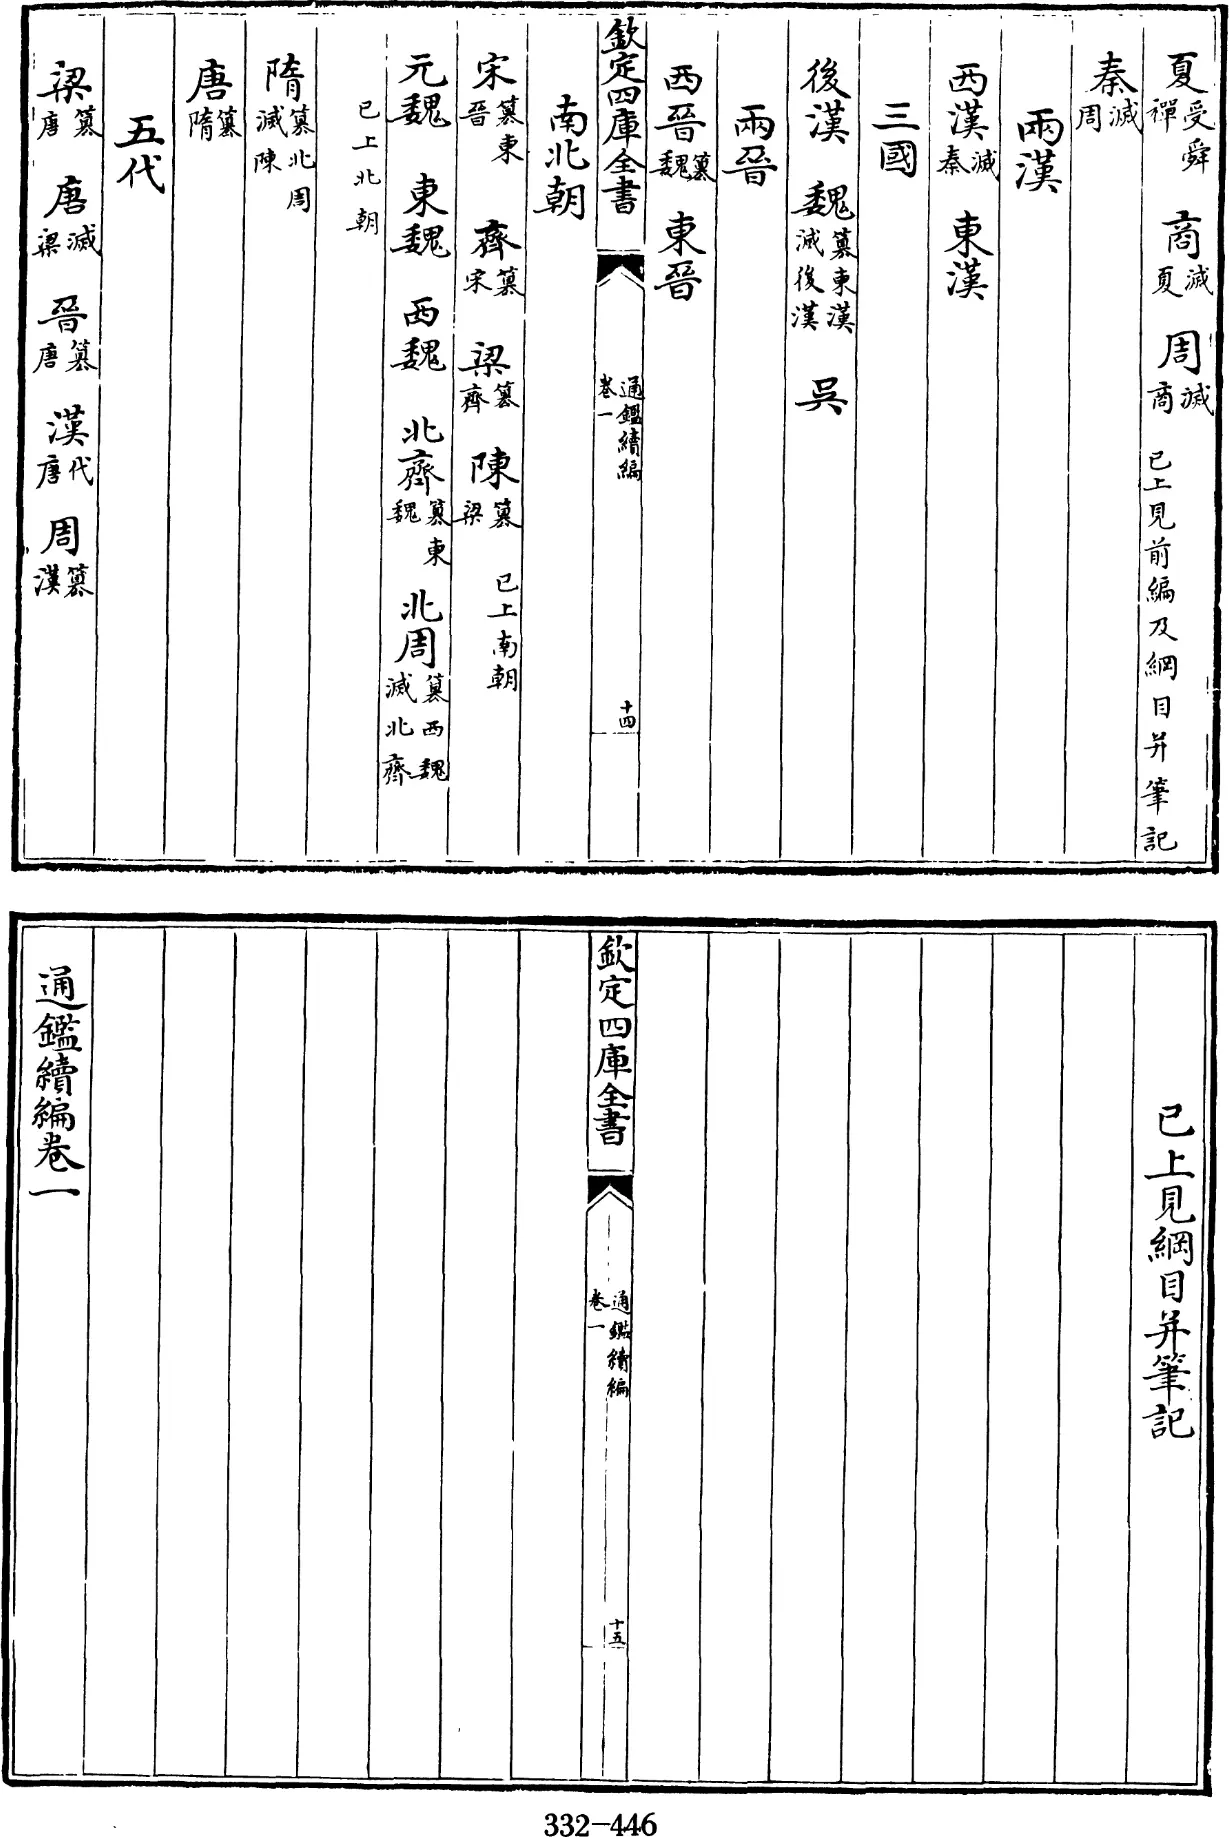 夏受舜禪 商滅夏 周滅商 已上見前編及綱目并筆記
秦滅周
兩漢
西漢滅秦 東漢
三國
後漢 魏篡東漢滅後漢 吳
兩晉
西晉篡魏 東晉
欽定四庫全書 通鑑續編卷一 十四
南北朝
宋篡東晉 齊篡宋 梁篡齊 陳篡梁 已上南朝
元魏 東魏 西魏 北齊篡東魏 北周篡西魏滅北齊
已上北朝
隋篡北周滅陳
唐篡隋
五代
梁篡唐 唐滅梁 晉篡唐 漢代唐 周篡漢
已上見綱目并筆記
欽定四庫全書 通鑑續編卷一 十五
通鑑續編卷一
332-446